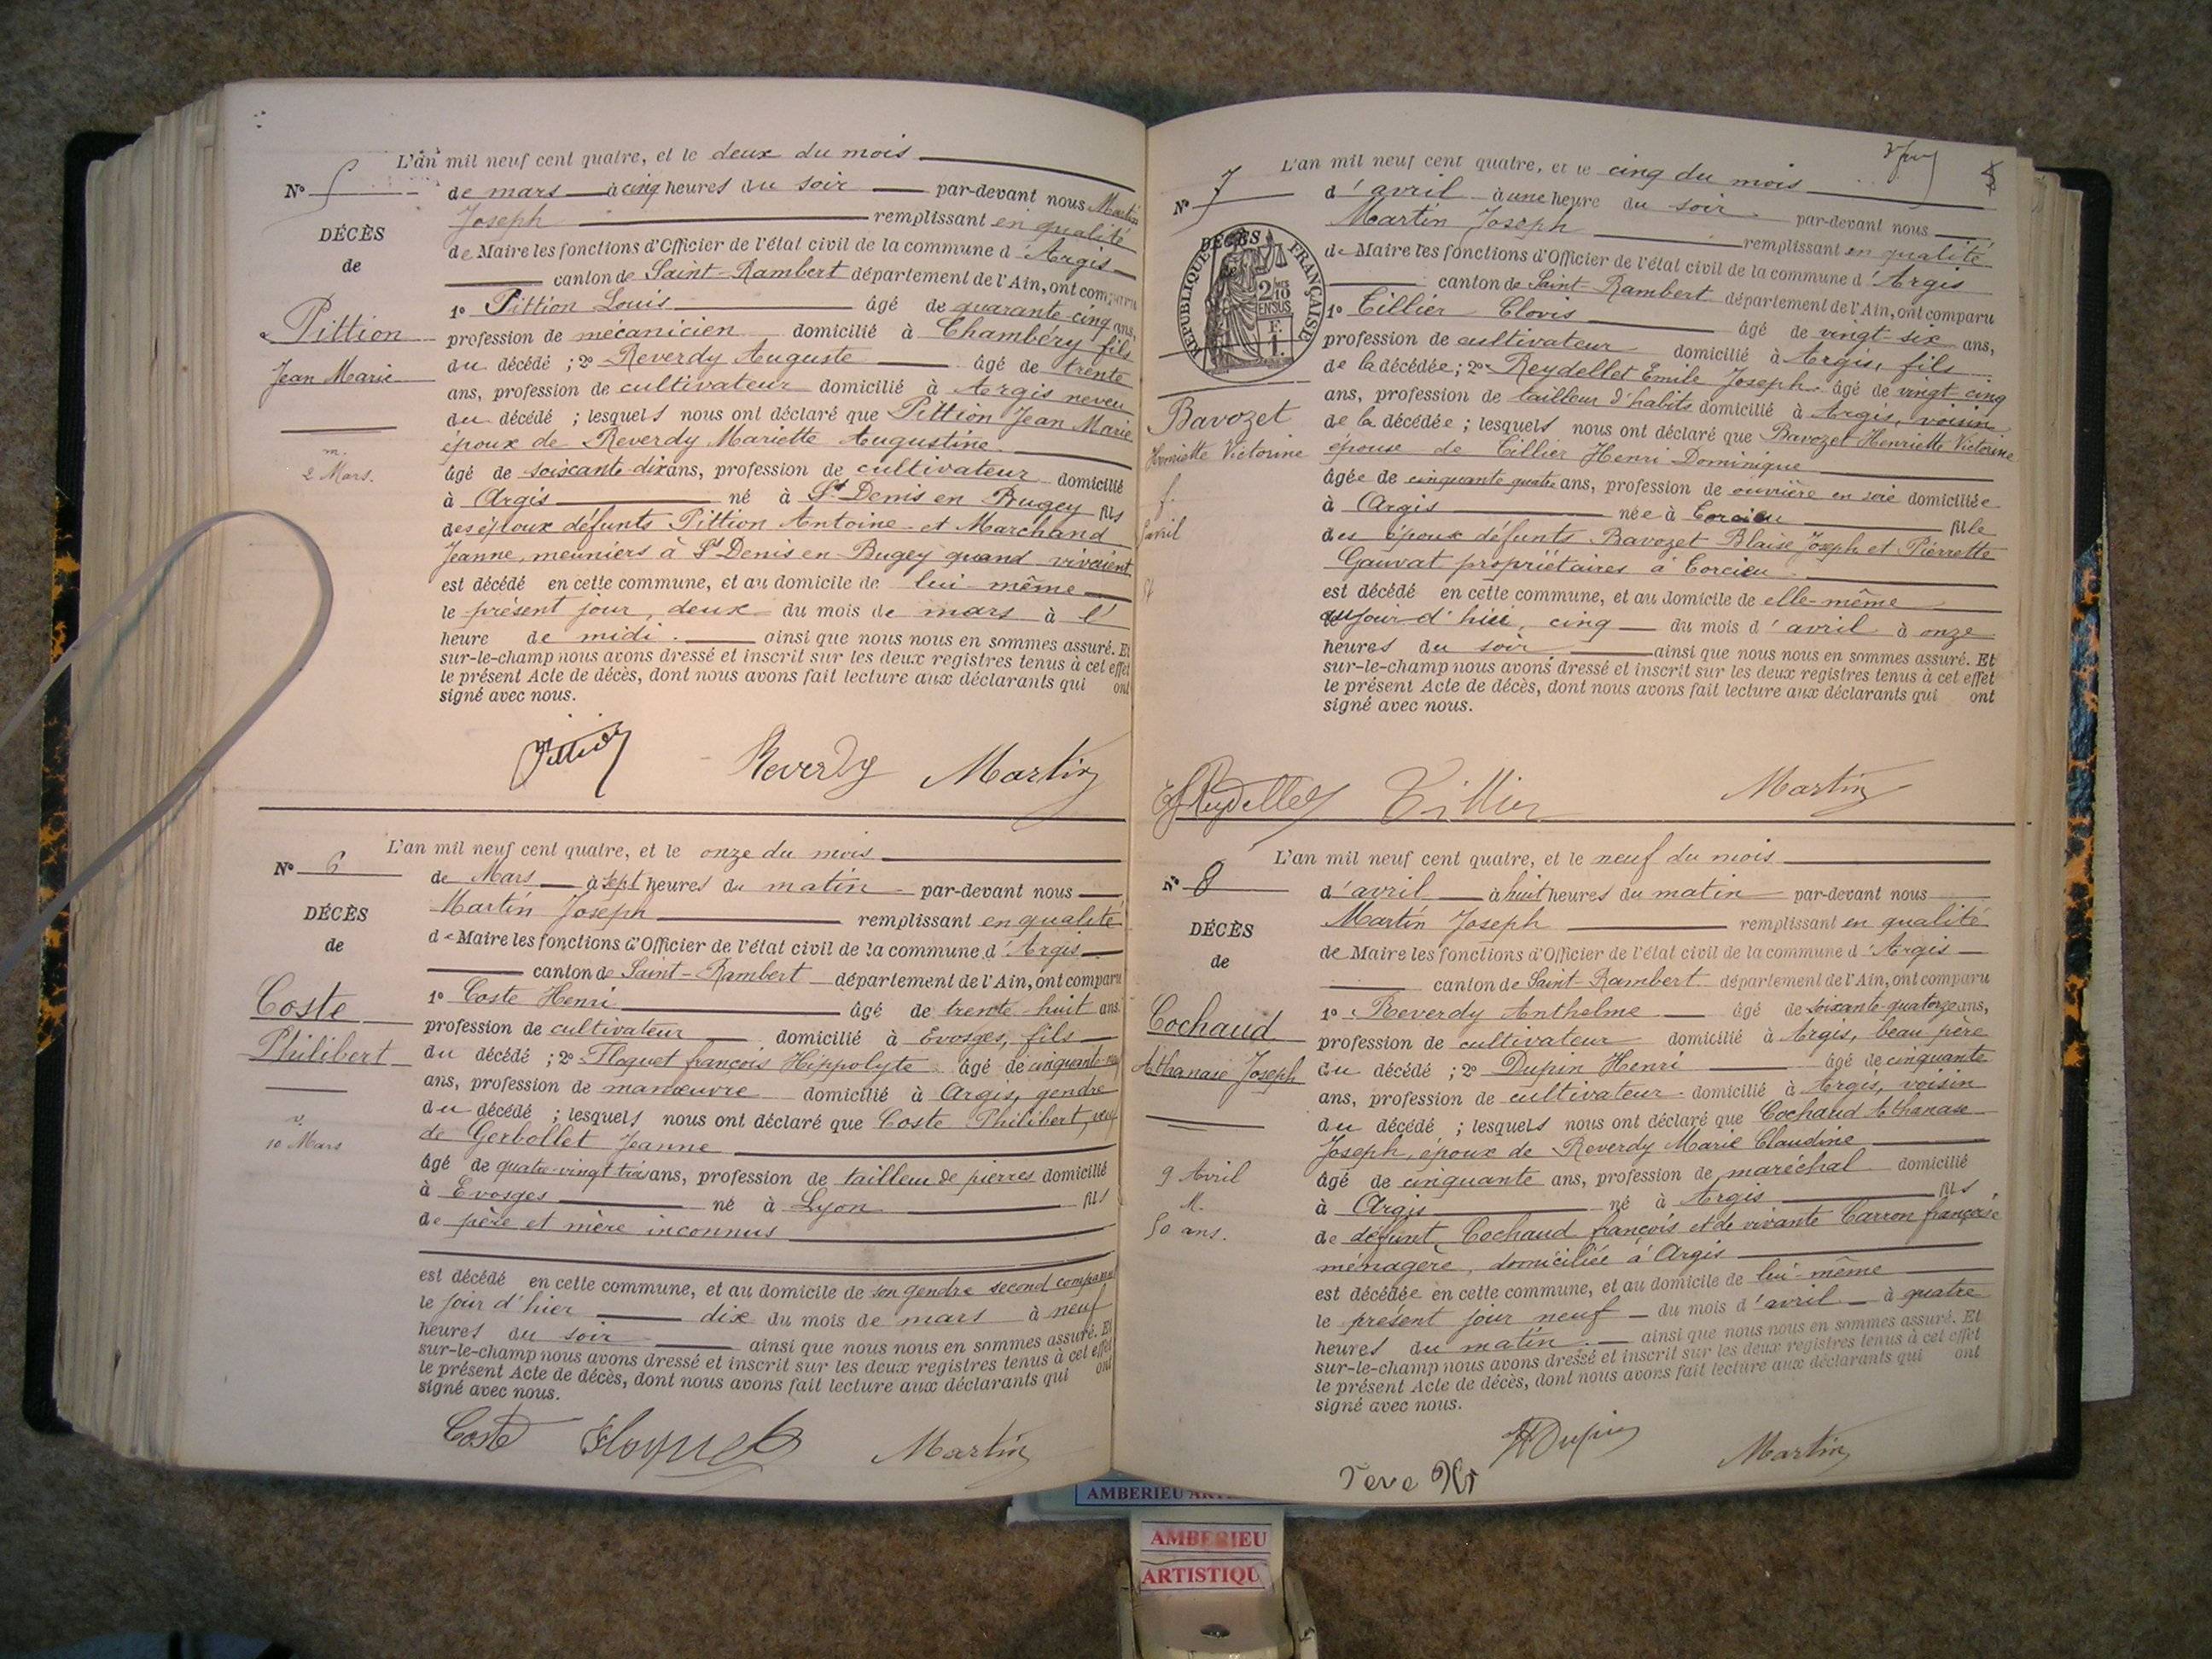 L'an mil neuf cent quatre, et le deux du mois
N° 5
de mars à cinq heures du soir par-devant nous Martin
Joseph remplissant en qualité
DÉCÈS
de Maire les fonctions d'Officier de l'état civil de la commune d'Argis
de
canton de Saint-Rambert département de l'Ain, ont comparu
1° Pittion Louis âgé de quarante-cinq ans,
Pittion
profession de mécanicien domicilié à Chambéry fils
du décédé ; 2° Reverdy Auguste âgé de trente
Jean Marie
ans, profession de cultivateur domicilié à Argis neveu
du décédé ; lesquels nous ont déclaré que Pittion Jean Marie
époux de Reverdy Mariette Augustine
m.
2 Mars.
âgé de soiscante dix ans, profession de cultivateur domicilié
à Argis né à St Denis en Bugey fils
des époux défunts Pittion Antoine et Marchand
Jeanne, meuniers à St Denis en Bugey quand vivaient,
est décédé en cette commune, et au domicile de lui-même
le présent jour, deux du mois de mars à l'
heure de midi. ainsi que nous nous en sommes assuré. Et
sur-le-champ nous avons dressé et inscrit sur les deux registres tenus à cet effet
le présent Acte de décès, dont nous avons fait lecture aux déclarants qui ont
signé avec nous.
Pittion Reverdy Martin
L'an mil neuf cent quatre, et le onze du mois
N° 6
de Mars à sept heures du matin par-devant nous
Martin Joseph remplissant en qualité
DÉCÈS
de Maire les fonctions d'Officier de l'état civil de la commune d'Argis
de
canton de Saint-Rambert département de l'Ain, ont comparu
Coste
1° Coste Henri âgé de trente-huit ans
profession de cultivateur domicilié à Evosges, fils
Philibert
du décédé ; 2° Floquet françois Hippolyte âgé de cinquante
ans, profession de manœuvre domicilié à Argis, gendre
du décédé ; lesquels nous ont déclaré que Coste Philibert, veuf
de Gerbollet Jeanne
10 Mars
âgé de quatre-vingt trois ans, profession de tailleur de pierres domicilié
à Evosges né à Lyon fils
de père et mère inconnus
est décédé en cette commune, et au domicile de son gendre second comparant
le jour d'hier dix du mois de mars à neuf
heures du soir ainsi que nous nous en sommes assuré. Et
sur-le-champ nous avons dressé et inscrit sur les deux registres tenus à cet effet
le présent Acte de décès, dont nous avons fait lecture aux déclarants qui ont
signé avec nous.
Coste Floquet Martin
L'an mil neuf cent quatre, et le cinq du mois
N° 7
d'avril à une heure du soir par-devant nous
Martin Joseph remplissant en qualité
DÉCÈS
RÉPUBLIQUE FRANÇAISE
2/10 EN SUS
F.
1.
de Maire les fonctions d'Officier de l'état civil de la commune d'Argis
canton de Saint-Rambert département de l'Ain, ont comparu
1° Tillier Clovis âgé de vingt-six ans,
profession de cultivateur domicilié à Argis, fils
de la décédée ; 2° Reydellet Emile Joseph âgé de vingt-cinq
ans, profession de tailleur d'habits domicilié à Argis, voisin
Bavozet
de la décédée ; lesquels nous ont déclaré que Bavozet Henriette Victorine
Henriette Victorine
épouse de Tillier Henri Dominique
âgée de cinquante quatre ans, profession de ouvrière en soie domiciliée
f.
à Argis née à Torcieu fille
5 avril
des époux défunts Bavozet Blaise Joseph et Pierrette
Gauvat propriétaires à Torcieu
54
est décédé en cette commune, et au domicile de elle-même
cinq du mois d'avril à onze
heures du soir ainsi que nous nous en sommes assuré. Et
sur-le-champ nous avons dressé et inscrit sur les deux registres tenus à cet effet
le présent Acte de décès, dont nous avons fait lecture aux déclarants qui ont
signé avec nous.
EJ Reydellet Tillier Martin
L'an mil neuf cent quatre, et le neuf du mois
N° 8
d'avril à huit heures du matin par-devant nous
Martin Joseph remplissant en qualité
DÉCÈS
de Maire les fonctions d'Officier de l'état civil de la commune d'Argis
de
canton de Saint-Rambert département de l'Ain, ont comparu
Cochaud
1° Reverdy Anthelme âgé de soixante-quatorze ans,
profession de cultivateur domicilié à Argis, beau père
Athanase Joseph
du décédé ; 2° Dupin Henri âgé de cinquante
ans, profession de cultivateur domicilié à Argis, voisin
du décédé ; lesquels nous ont déclaré que Cochaud Athanase
Joseph, époux de Reverdy Marie Claudine
9 Avril
âgé de cinquante ans, profession de maréchal domicilié
M.
à Argis né à Argis fils
50 ans.
de défunt Cochaud françois et de vivante Carron françoise
ménagère, domiciliée à Argis
est décédée en cette commune, et au domicile de lui-même
le présent jour neuf du mois d'avril à quatre
heures du matin. ainsi que nous nous en sommes assuré. Et
sur-le-champ nous avons dressé et inscrit sur les deux registres tenus à cet effet
le présent Acte de décès, dont nous avons fait lecture aux déclarants qui ont
signé avec nous.
H Dupin Martin
AMBERIEU
AMBERIEU
ARTISTIQU